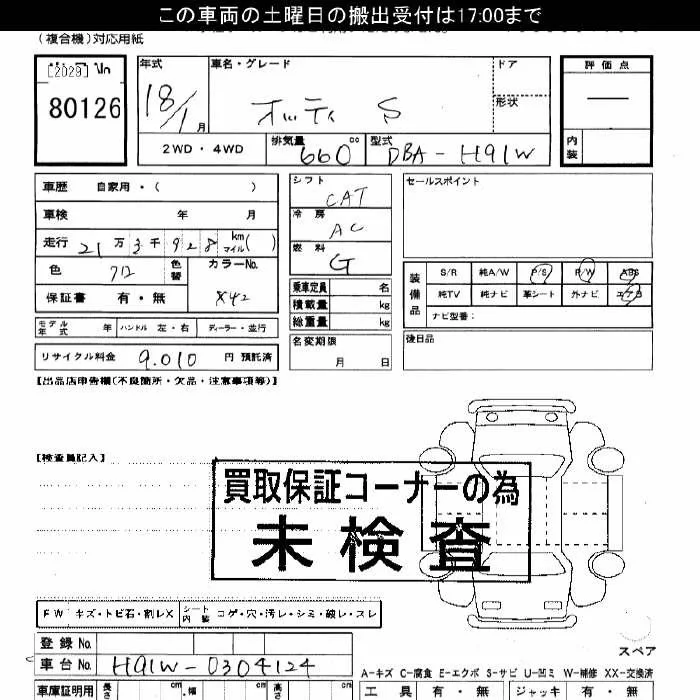 この車両の土曜日の搬出受付は17:00まで
(複合機)対応用紙
[2029]
80126
年式 車名・グレード ドア 評価点
18/1 月 オッティ S 形状 ―
2WD・4WD 排気量 660 cc 型式 DBA-H91W 内装
車歴 自家用・( )
車検 年 月
走行 21万3千928 km マイル( )
色 色替 カラーNo.
X42
保証書 有・無
モデル年式 年 ハンドル 左・右 ディーラー・並行
リサイクル料金 9.010 円 預託済
シフト CAT
冷房 AC
燃料 G
乗車定員 名
積載量 kg
総重量 kg
名変期限 月 日
セールスポイント
装備品 S/R 純A/W P/S P/W ABS
純TV 純ナビ 革シート 外ナビ エアB
ナビ型番:
後日品
【出品店申告欄(不良箇所・欠品・注意事項等)】
【検査員記入】
買取保証コーナーの為
未検査
FW キズ・トビ石・割レX シート内装 コゲ・穴・汚レ・シミ・破レ・スレ
登録No.
車台No. H91W-0304124
スペア
A-キズ C-腐食 E-エクボ S-サビ U-凹ミ W-補修 XX-交換済
車庫証明用 長さ cm 幅 cm 高さ cm 工具 有・無 ジャッキ 有・無